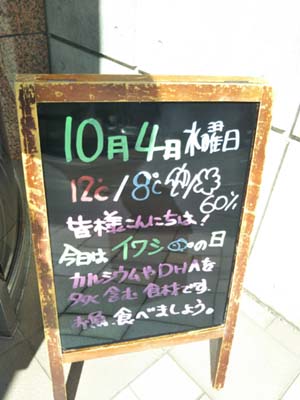 10月4日 水曜日
12℃/8℃ 60%
皆様こんにちは!
今日はイワシの日
カルシウムやDHAを
多く含む食材です。
お魚、食べましょう。